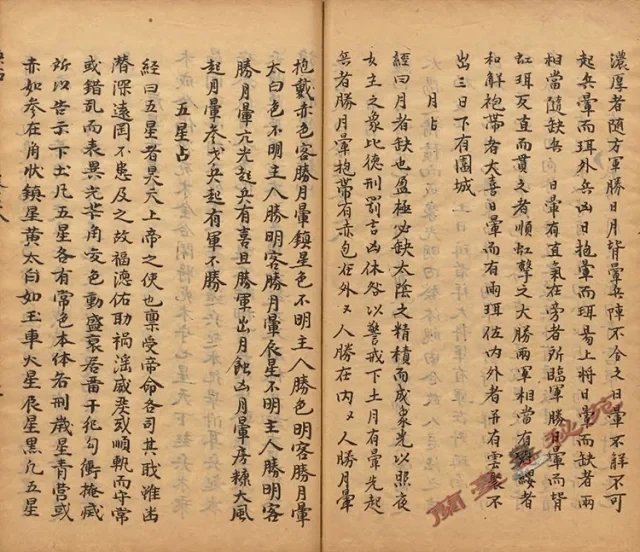 濃厚者隨方軍勝日月皆暈兵陣不合暈不解不可
起兵暈而珥外兵凶日抱暈而珥易上將日暈而缺者兩
相當隨缺兵 日暈有直氣在旁者所臨軍勝月暈而皆
虹珥灰直而貫之者順虹擊之大勝兩軍相當有纓者
和解袍帶者大喜日暈而有兩珥佐內外者并有雲不
出三日下有圍城
月占
經曰月者缺也盈極必缺太陰之精積而成象光以照夜
女主之象比德刑罰吉凶休咎以警戒下土月有暈光起
兵者勝月暈抱帶有赤色在外〻人勝在內〻人勝月暈
抱戴赤色客勝月暈鎮星色不明主人勝色明客勝月暈
太白色不明主人勝明客勝月暈辰星不明主人勝明客
勝月暈亢光起兵有喜且勝軍出月蝕凶月暈房糠大風
起月暈參戈兵起有軍不勝
五星占
經曰五星者昊天上帝之使也稟受帝命各司其戢淮幽
潛深遠罔不患及之故福德佑助禍淫威或順軌而守常
或錯亂而表異光芒角变色動盛衰居畱干犯勾衝掩滅
所以告示下土凡五星各有常色本体各刑歲星青營或
亦如參在角狀鎮星黃太白如玉車火星辰星黑凡五星